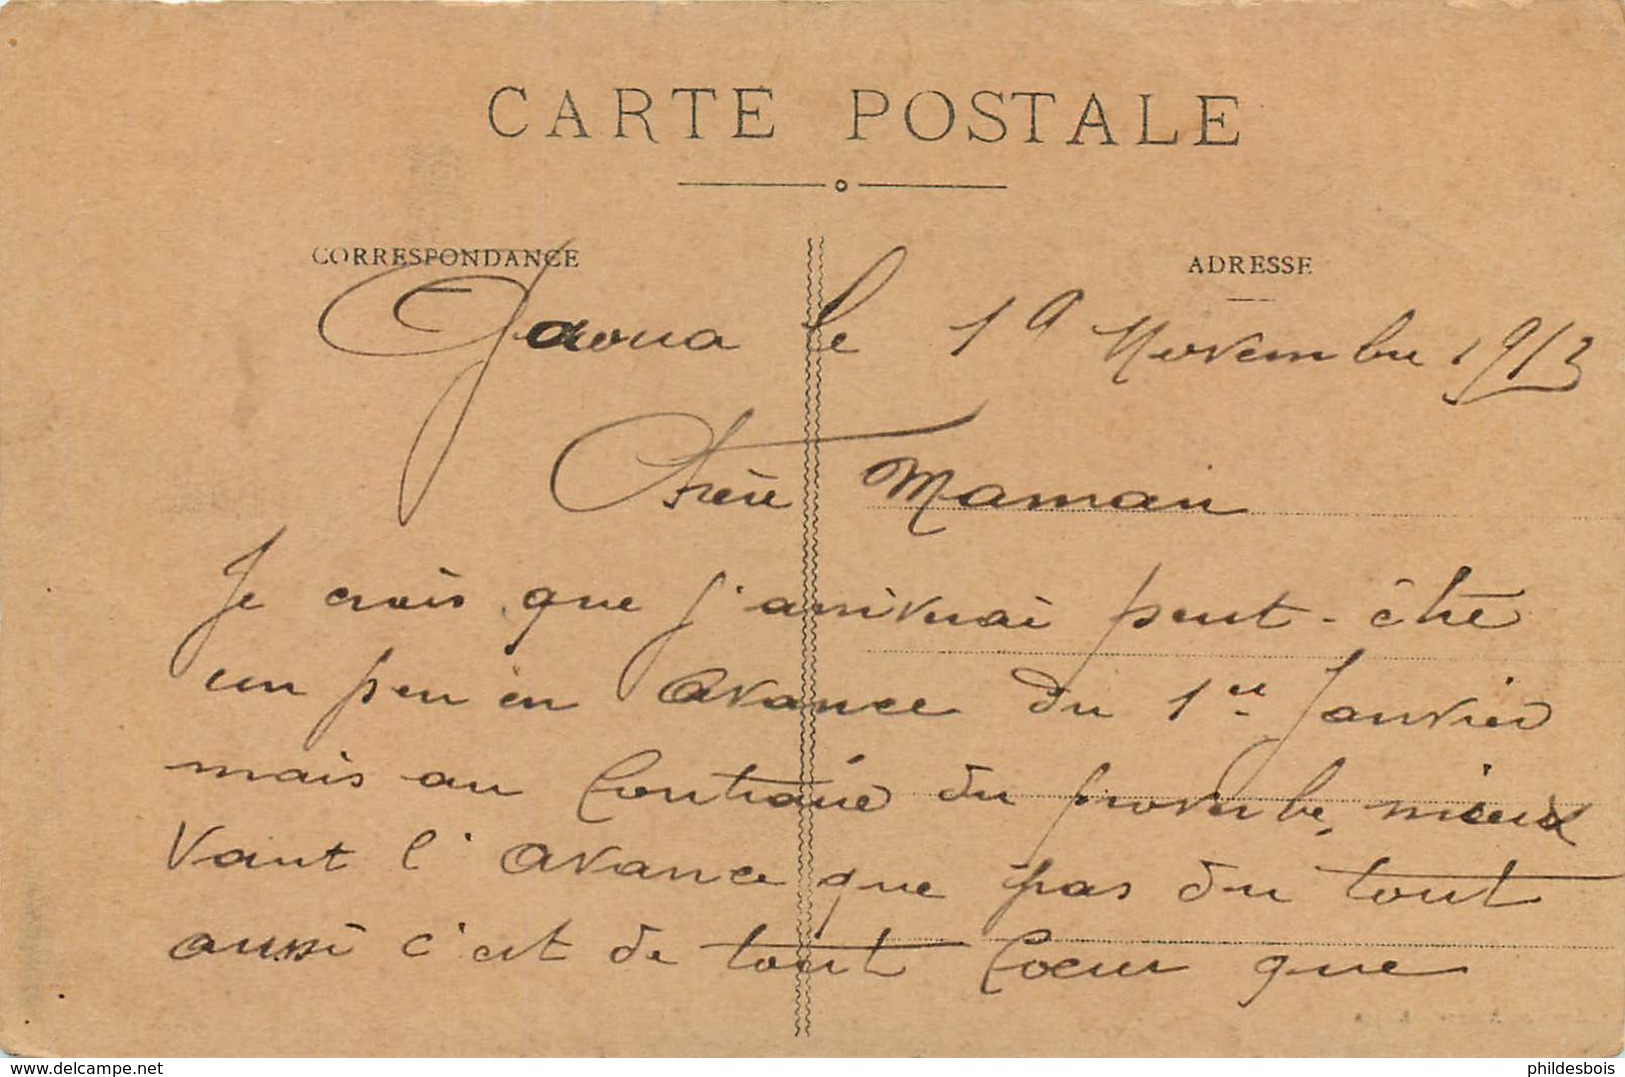 CARTE POSTALE
CORRESPONDANCE
ADRESSE
Gaoua le 19 Novembre 1913
Chère Maman
Je crois que j'arriverai peut-être
un peu en avance du 1er Janvier
mais au Contraire du proverbe, mieux
Vaut l'avance que pas du tout
aussi c'est de tout Coeur que
www.delcampe.net
phildesbois